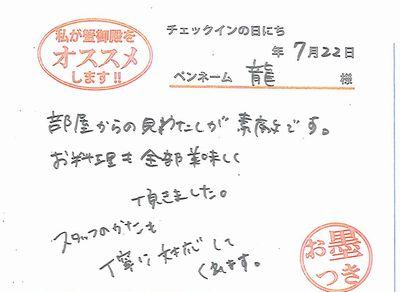 私が蟹御殿を
オススメ
します!!
チェックインの日にち
年 7月22日
ペンネーム 龍 様
部屋からの見わたしが素敵です。
お料理も全部美味しく
頂きました。
スタッフのかたも
丁寧に対応して
くれます。
お墨
つき